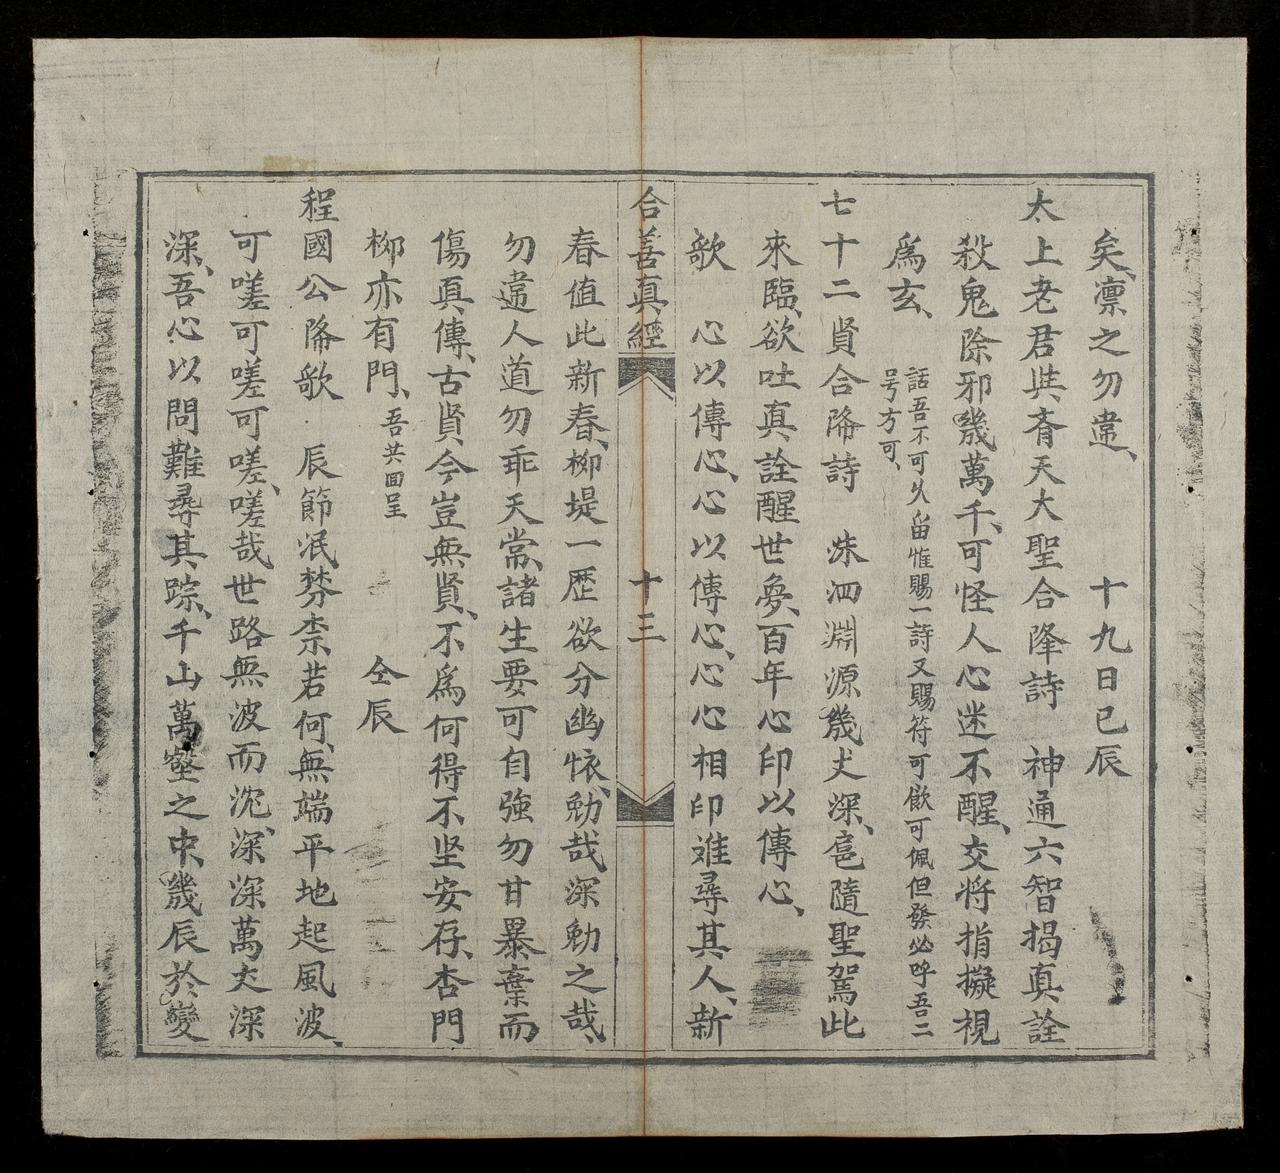 矣、凛之勿違、　十九日已辰
太上老君與齊天大聖合降詩　神通六智揭真詮
殺鬼除邪幾萬千、可怪人心迷不醒、交将指擬視
爲玄、
話吾不可久留惟賜一詩又賜符可飲可佩但發必呼吾二
号方可、
七十二賢合降詩　洙泗淵源幾丈深、扈隨聖駕此
來臨、欲吐真詮醒世夢、百年心印以傳心、
歌　心以傳心、心以傳心、心心相印誰尋其人、新
合善真經　十三
春值此新春、柳堤一歴欲分幽懷、勉哉深勉之哉、
勿違人道勿乖天常、諸生要可自強勿甘暴棄而
傷真傳、古賢今豈無賢、不爲何得不坚安存、杏門
柳亦有門、吾共回呈　仝辰
程國公降歌　辰節泯棼柰若何、無端平地起風波、
可嗟可嗟可嗟、嗟哉世路無波而沉、深深萬丈深
深、吾心以問難尋其踪、千山萬壑之中、幾辰於變